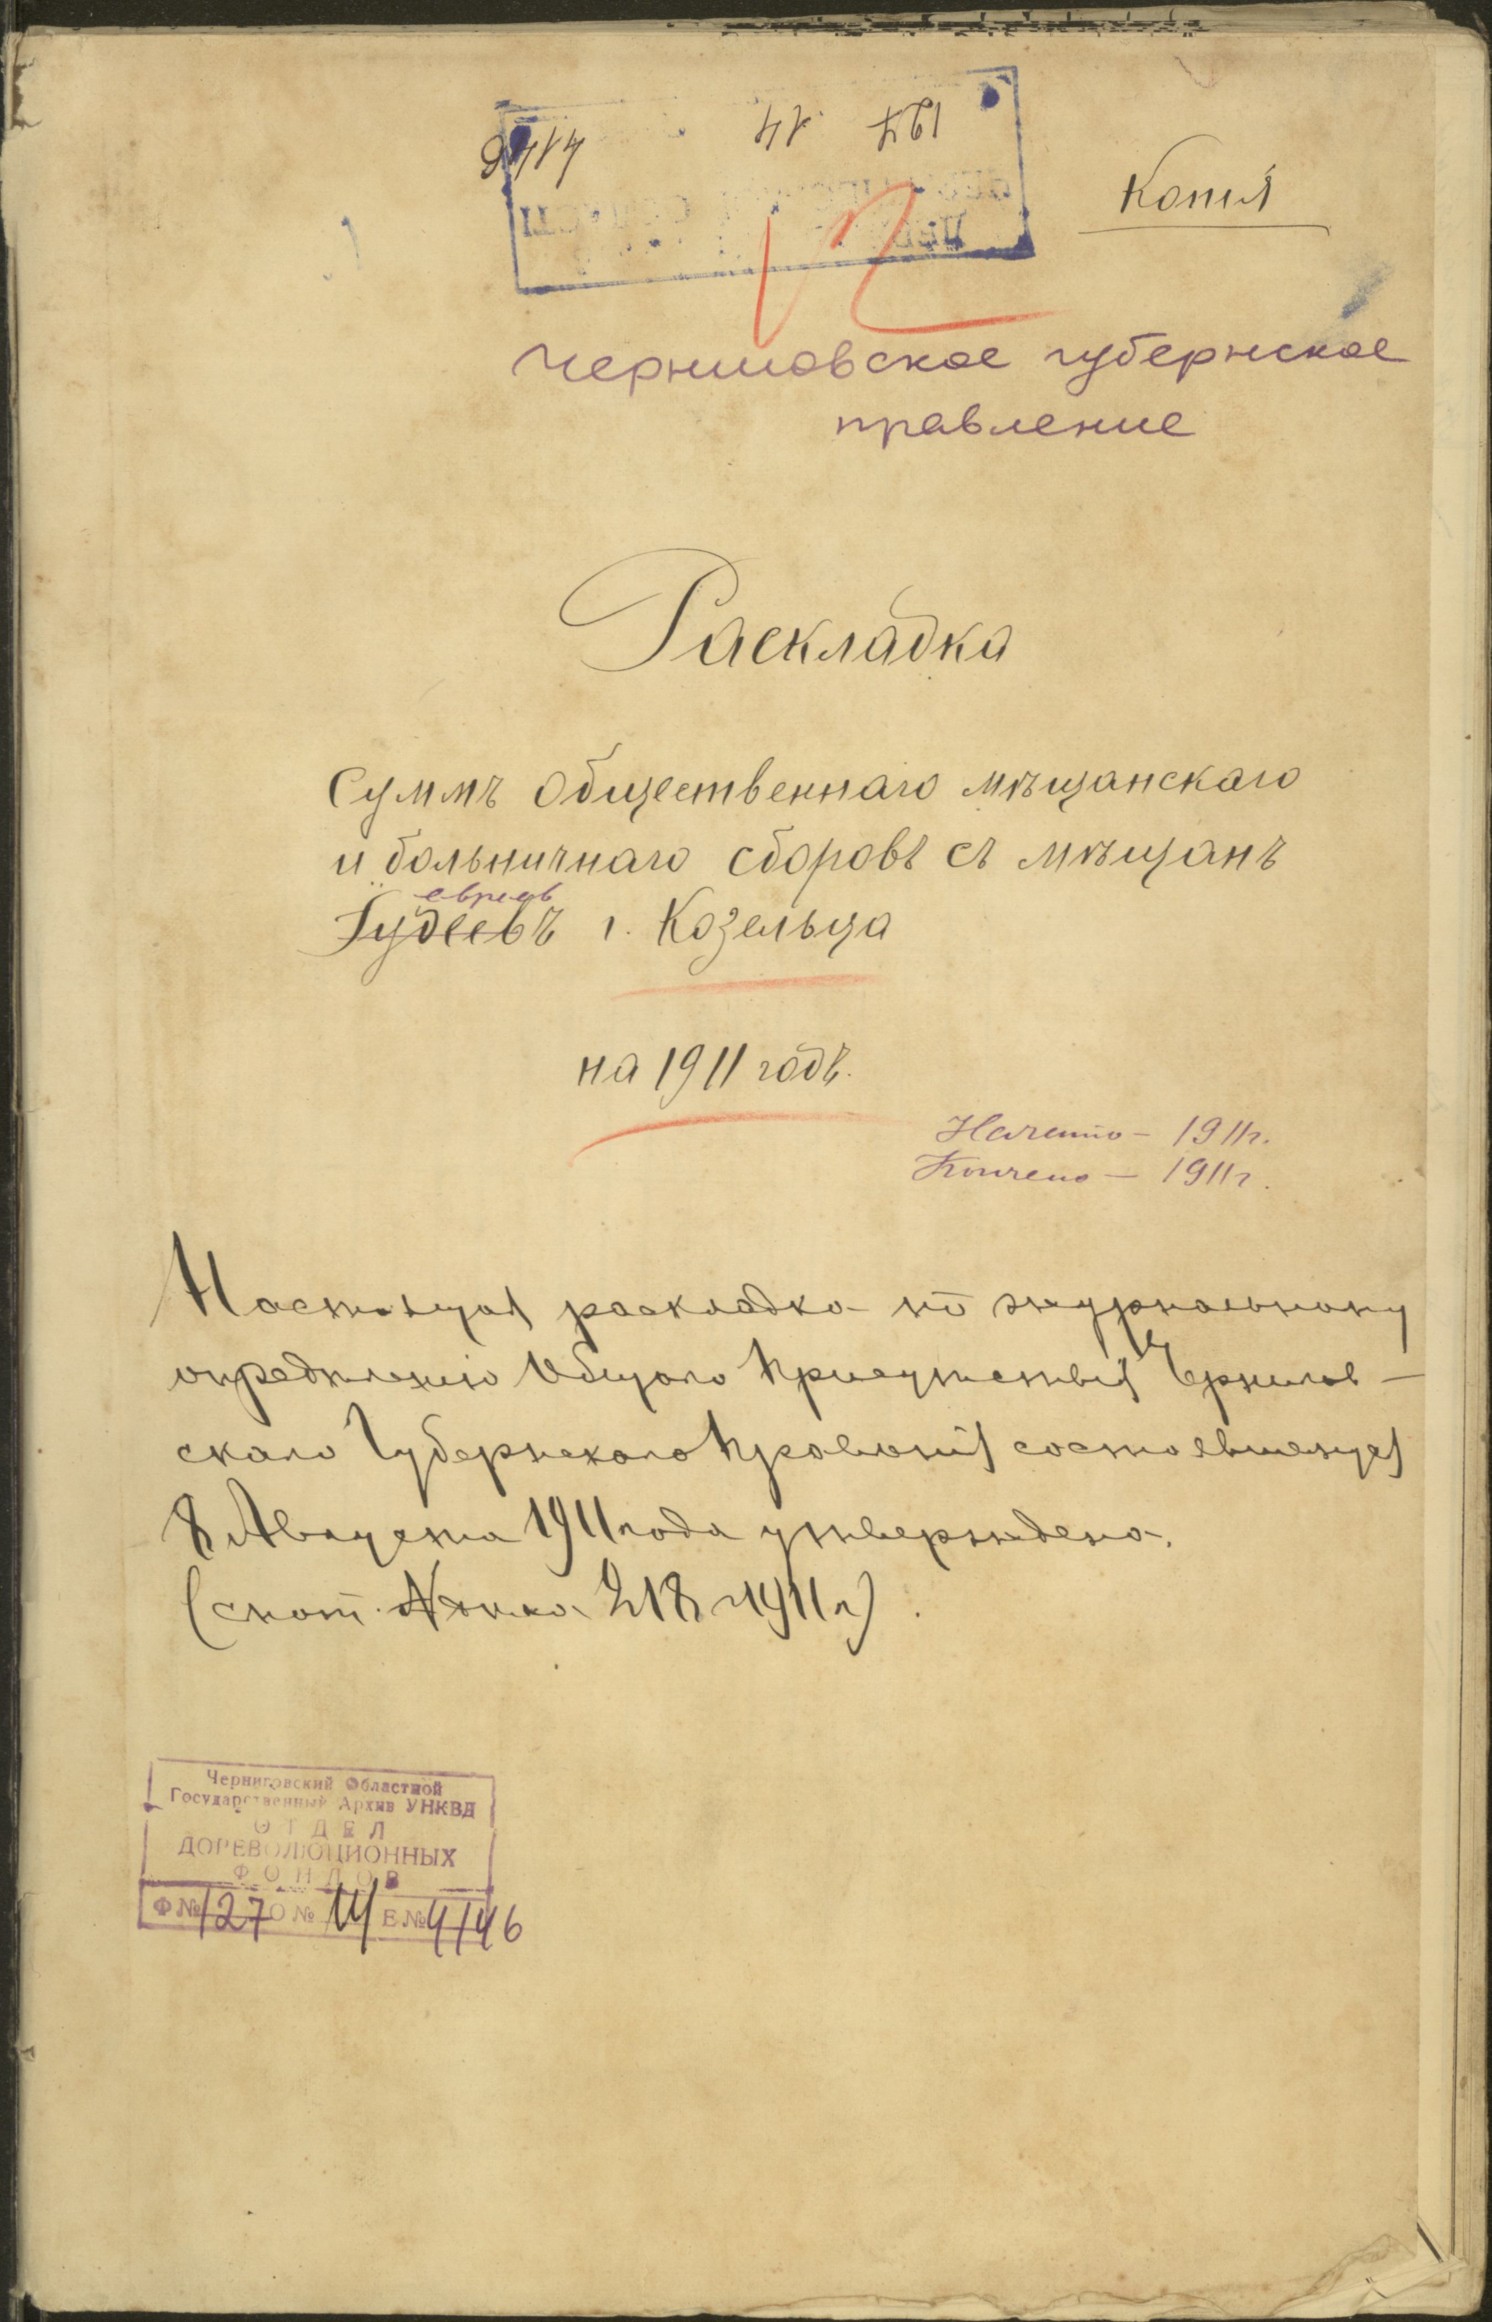 127 14 4146
Копія
Черниговское губернское
правление
Раскладка
Суммъ общественнаго мѣщанскаго
и больничнаго сборовъ съ мѣщанъ
евреев
Іудеевъ г. Козельца
на 1911 годъ.
Начато - 1911г.
Кончено - 1911г.
Настоящая раскладка по журнальному
опредѣленію Общаго Присутствія Чернигов-
скаго Губернскаго Правленія состоявшемуся
8 Августа 1911 года утверждена.
218 1911 г)
Черниговский Областной
Государственный Архив УНКВД
ОТДЕЛ
ДОРЕВОЛЮЦИОННЫХ
ФОНДОВ
Ф № 127 О № 14 Е № 4146